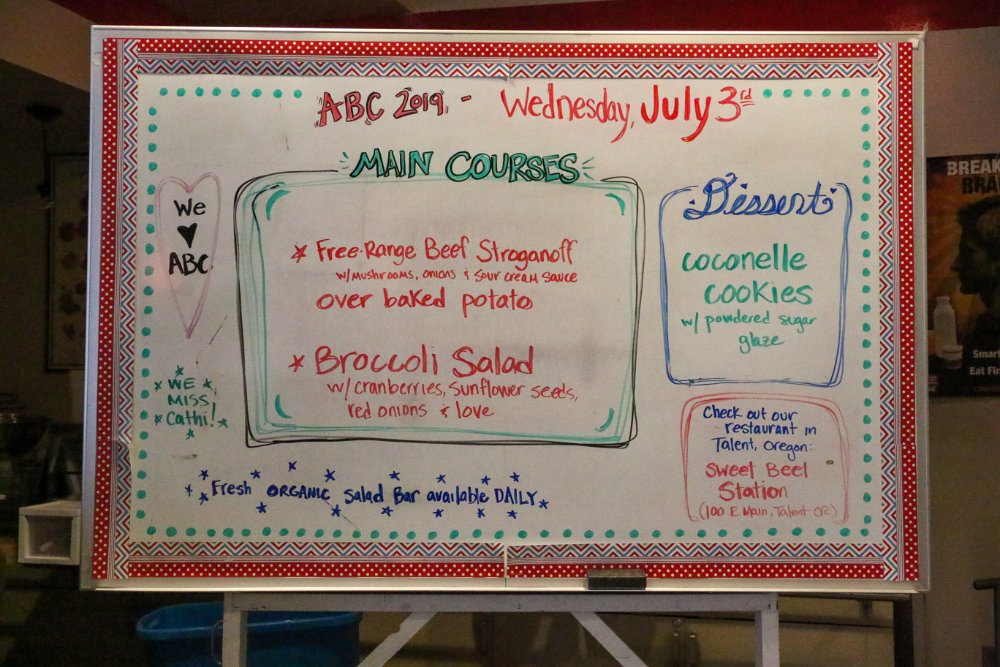 ABC 2019 - Wednesday, July 3rd
MAIN COURSES
We
♥
ABC
* Free-Range Beef Stroganoff
w/ Mushrooms, onions & Sour Cream Sauce
over baked potato
* Broccoli Salad
w/ cranberries, sunflower seeds,
red onions & love
Dessert
coconelle
cookies
w/ powdered sugar
glaze
WE
MISS
Cathi!
Check out our
restaurant in
Talent, Oregon:
Sweet Beet
Station
(100 E Main, Talent OR)
Fresh ORGANIC Salad Bar available DAILY
BREAK
BRA
Smart
Eat Fl